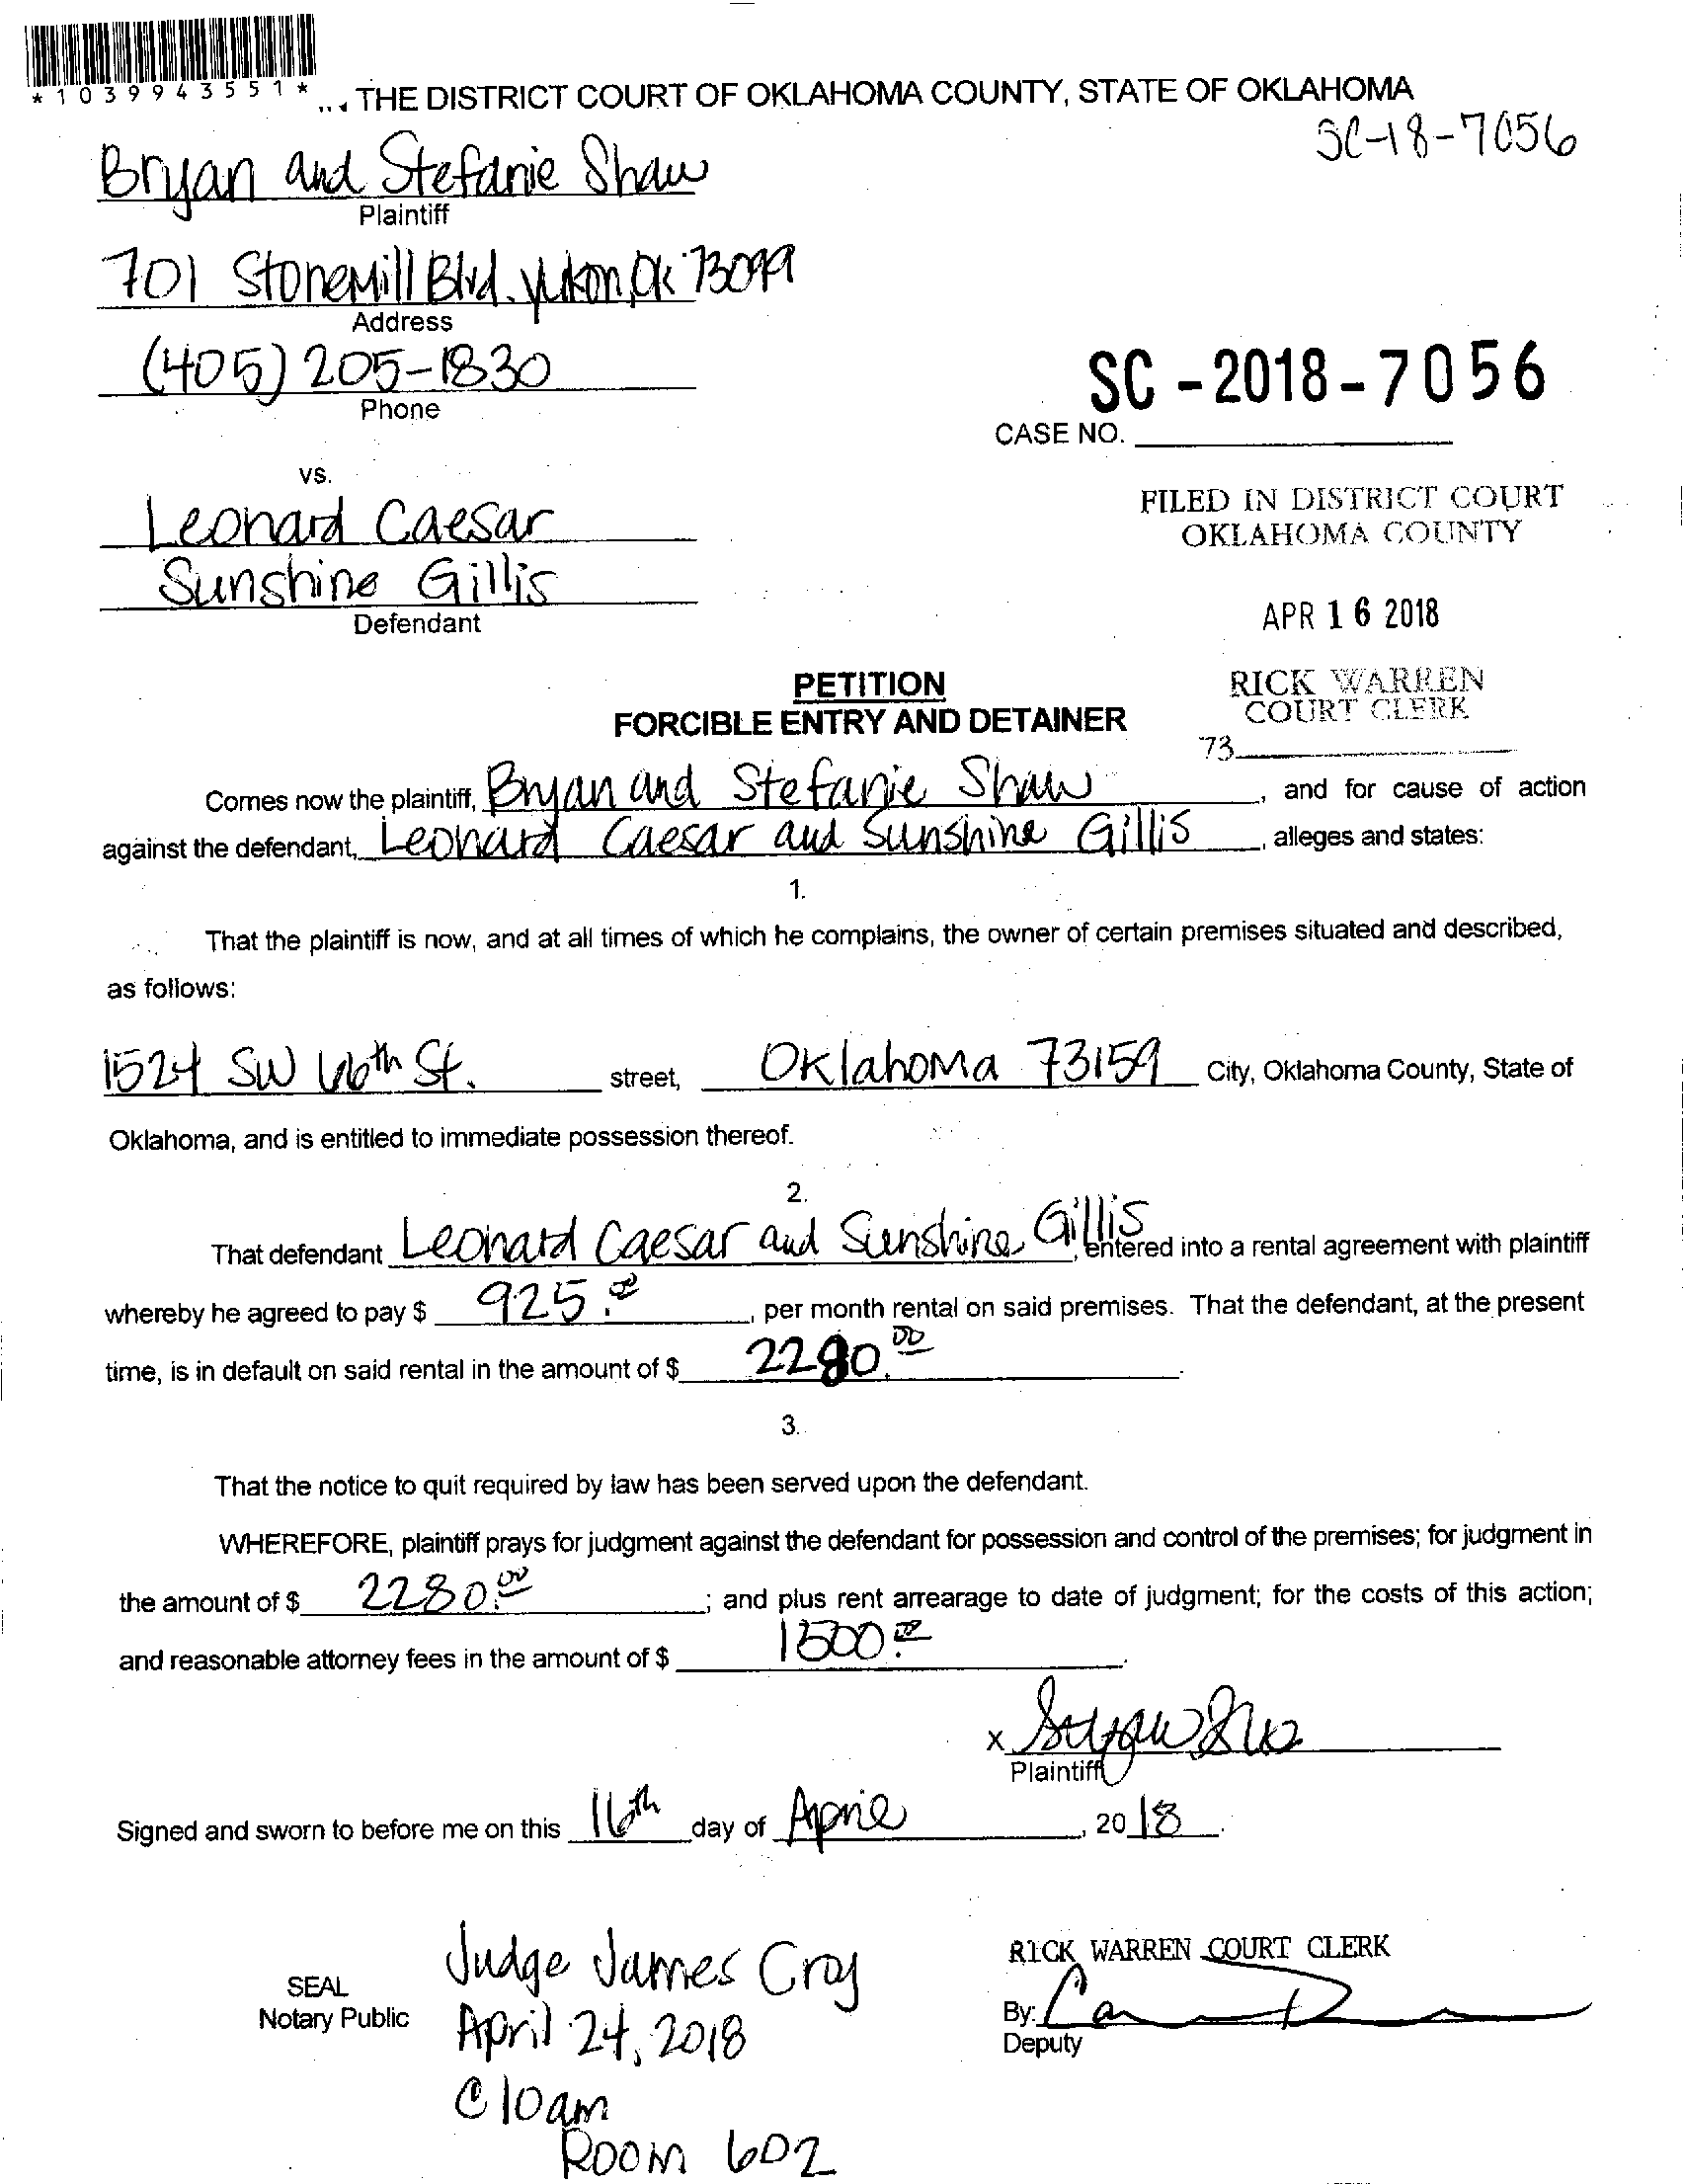 *1039943551*
THE DISTRICT COURT OF OKLAHOMA COUNTY, STATE OF OKLAHOMA
SC-18-7056
Bryan and Stefanie Shaw
Plaintiff
701 StoneMill Blvd. Yukon, Ok 73099
Address
(405) 205-1830
Phone
SC-2018-7056
CASE NO.
vs.
Leonard Caesar
Sunshine Gillis
Defendant
FILED IN DISTRICT COURT
OKLAHOMA COUNTY
APR 16 2018
RICK WARREN
COURT CLERK
73
PETITION
FORCIBLE ENTRY AND DETAINER
Comes now the plaintiff, Bryan and Stefanie Shaw, and for cause of action
against the defendant, Leonard Caesar and Sunshine Gillis, alleges and states:
1.
That the plaintiff is now, and at all times of which he complains, the owner of certain premises situated and described,
as follows:
1524 SW 66th St. street, Oklahoma 73159 City, Oklahoma County, State of
Oklahoma, and is entitled to immediate possession thereof.
2.
That defendant Leonard Caesar and Sunshine Gillis, entered into a rental agreement with plaintiff
whereby he agreed to pay $ 925.00, per month rental on said premises. That the defendant, at the present
time, is in default on said rental in the amount of $ 2280.00.
3.
That the notice to quit required by law has been served upon the defendant.
WHEREFORE, plaintiff prays for judgment against the defendant for possession and control of the premises; for judgment in
the amount of $ 2280.00; and plus rent arrearage to date of judgment; for the costs of this action;
and reasonable attorney fees in the amount of $ 1500.00.
x
Plaintiff
Signed and sworn to before me on this 16th day of April, 2018.
SEAL
Notary Public
Judge James Croy
April 24, 2018
@ 10am
Room 602
RICK WARREN COURT CLERK
By:
Deputy